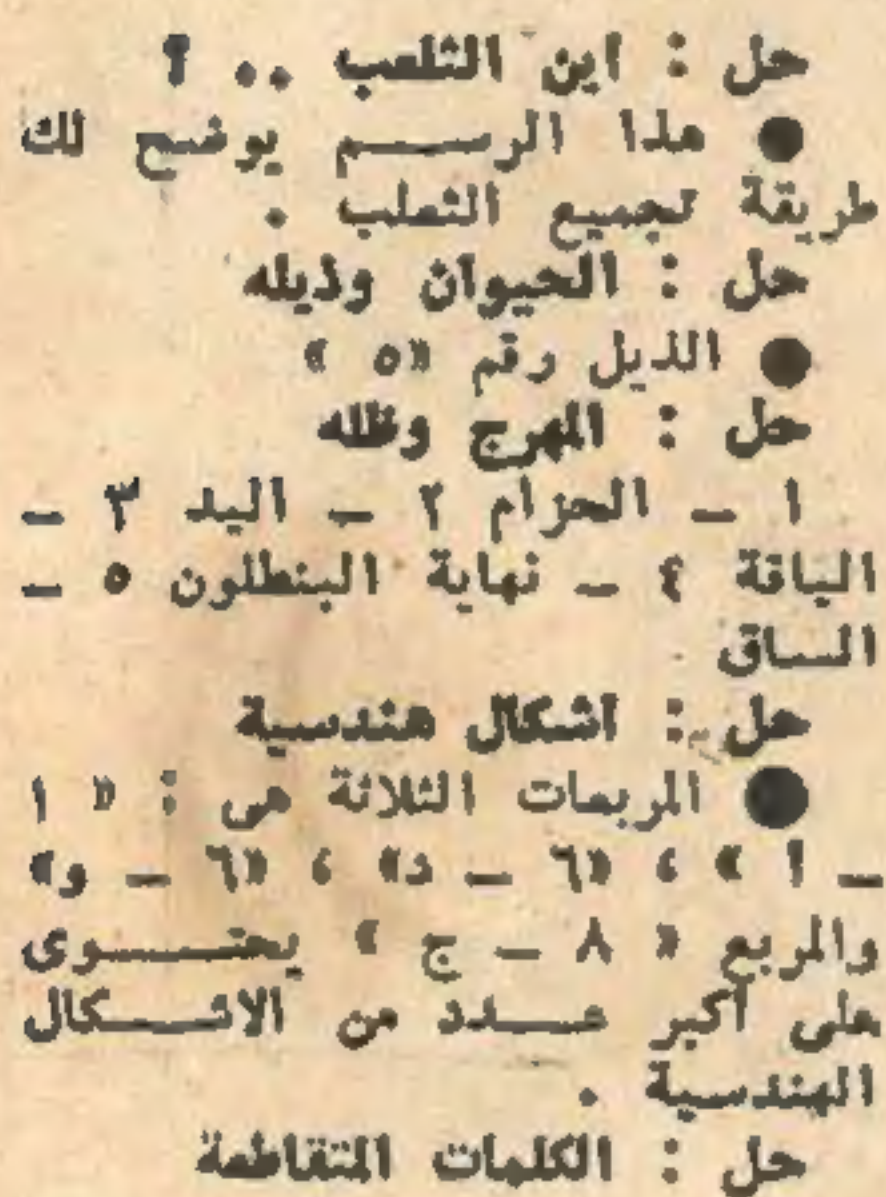 حل : اين الثلعب .. ؟
● هذا الرسم يوضح لك
طريقة تجميع الثعلب .
حل : الحيوان وذيله
● الذيل رقم «٥ »
حل : المهرج وظله
١ ــ الحزام ٢ ــ اليد ٣ ــ
الياقة ٤ ــ نهاية البنطلون ٥ ــ
الساق
حل : اشكال هندسية
● المربعات الثلاثة هى : « ١
ــ أ » ، «٦ ــ د» ، «٦ ــ و»
والمربع « ٨ ــ ج » يحتوى
على أكبر عدد من الاشكال
الهندسية .
حل : الكلمات المتقاطعة